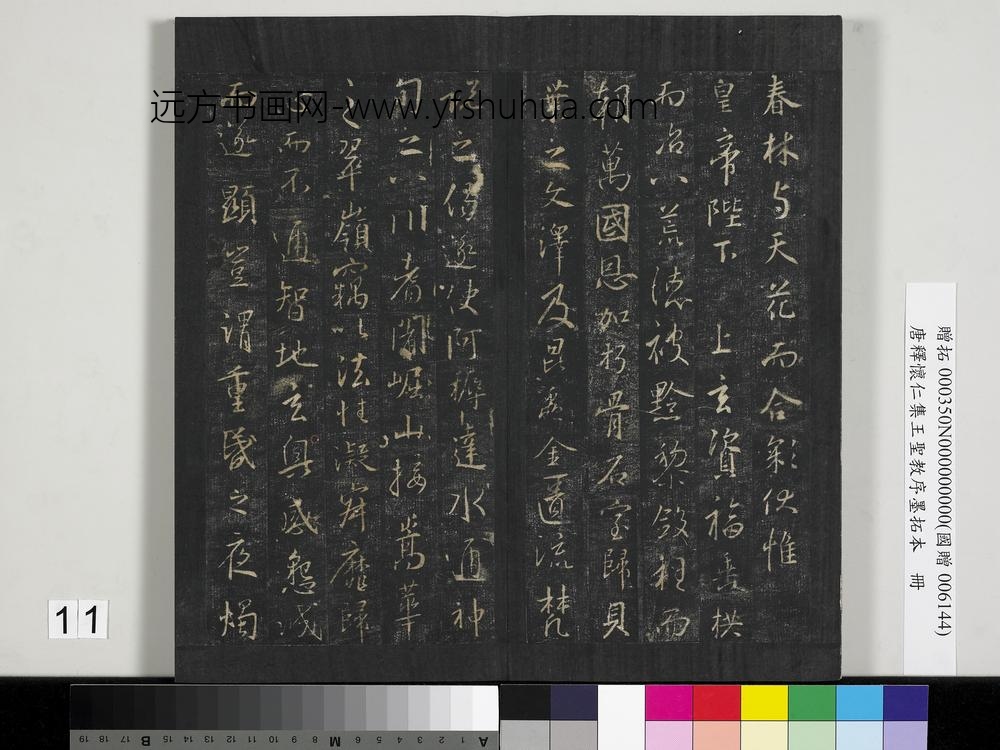 春林与天花而合彩伏惟
皇帝陛下 上玄資福垂拱
而治八荒德被黔黎斂衽而
朝萬國恩加朽骨石室歸貝
葉之文澤及昆蟲金匱流梵
說之偈遂使阿耨達水通神
甸之八川耆闍崛山接嵩華
之翠嶺竊以法性凝寂靡歸
心而不通智地玄奧感懇誠
而遂顯豈謂重昏之夜燭
远方书画网-www.yfshuhua.com
贈拓 000350N000000000(國贈 006144)
唐釋懷仁集王聖教序墨拓本 冊
11
A 1 2 3 4 5 6 M 8 9 10 11 12 13 14 15 B 17 18 19